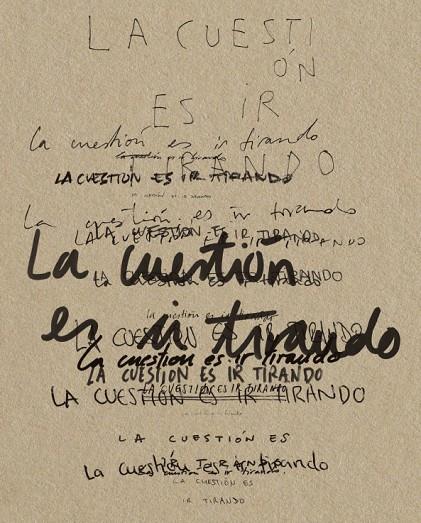 LA CUESTI
ÓN
ES IR
La cuestión es ir tirando
la cuestión es ir tirando
TIRANDO
LA CUESTION ES IR TIRANDO
La cuestión es ir tirando
LA CUESTIÓN ES IR TIRANDO
La cuestión
LA CUESTIÓN ES IR TIRANDO
la cuestión es ir tirando
es ir tirando
LA CUESTIÓN ES IR TIRANDO
La cuestion es ir tirando
LA CUESTION ES IR TIRANDO
LA CUESTIÓN ES IR TIRANDO
LA CUESTIÓN ES IR TIRANDO
LA CUESTIÓN ES
IR TIRANDO
La cuestión es ir tirando
LA CUESTIÓN ES
IR TIRANDO